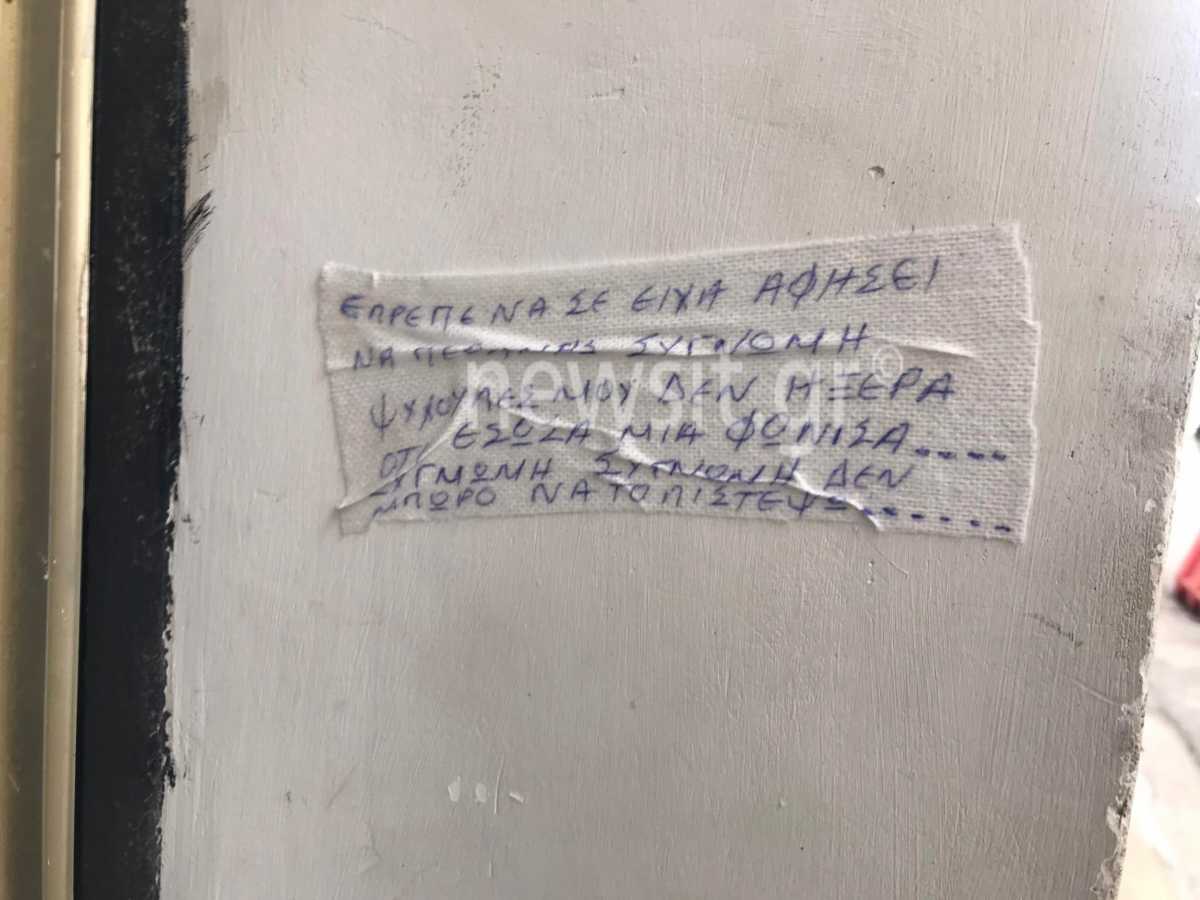 ΕΠΡΕΠΕ ΝΑ ΣΕ ΕΙΧΑ ΑΦΗΣΕΙ
ΝΑ ΣΥΓΝΩΜΗ
ΨΥΧΟΥΛΕΣ ΜΟΥ ΔΕΝ ΗΞΕΡΑ
ΟΤΙ ΕΣΩΣΑ ΜΙΑ ΦΩΝΙΣΑ.....
ΣΥΓΝΩΜΗ ΣΥΓΝΩΜΗ ΔΕΝ
ΜΠΩΡΟ ΝΑ ΤΟ ΠΙΣΤΕΨΩ.......
newsit.gr©